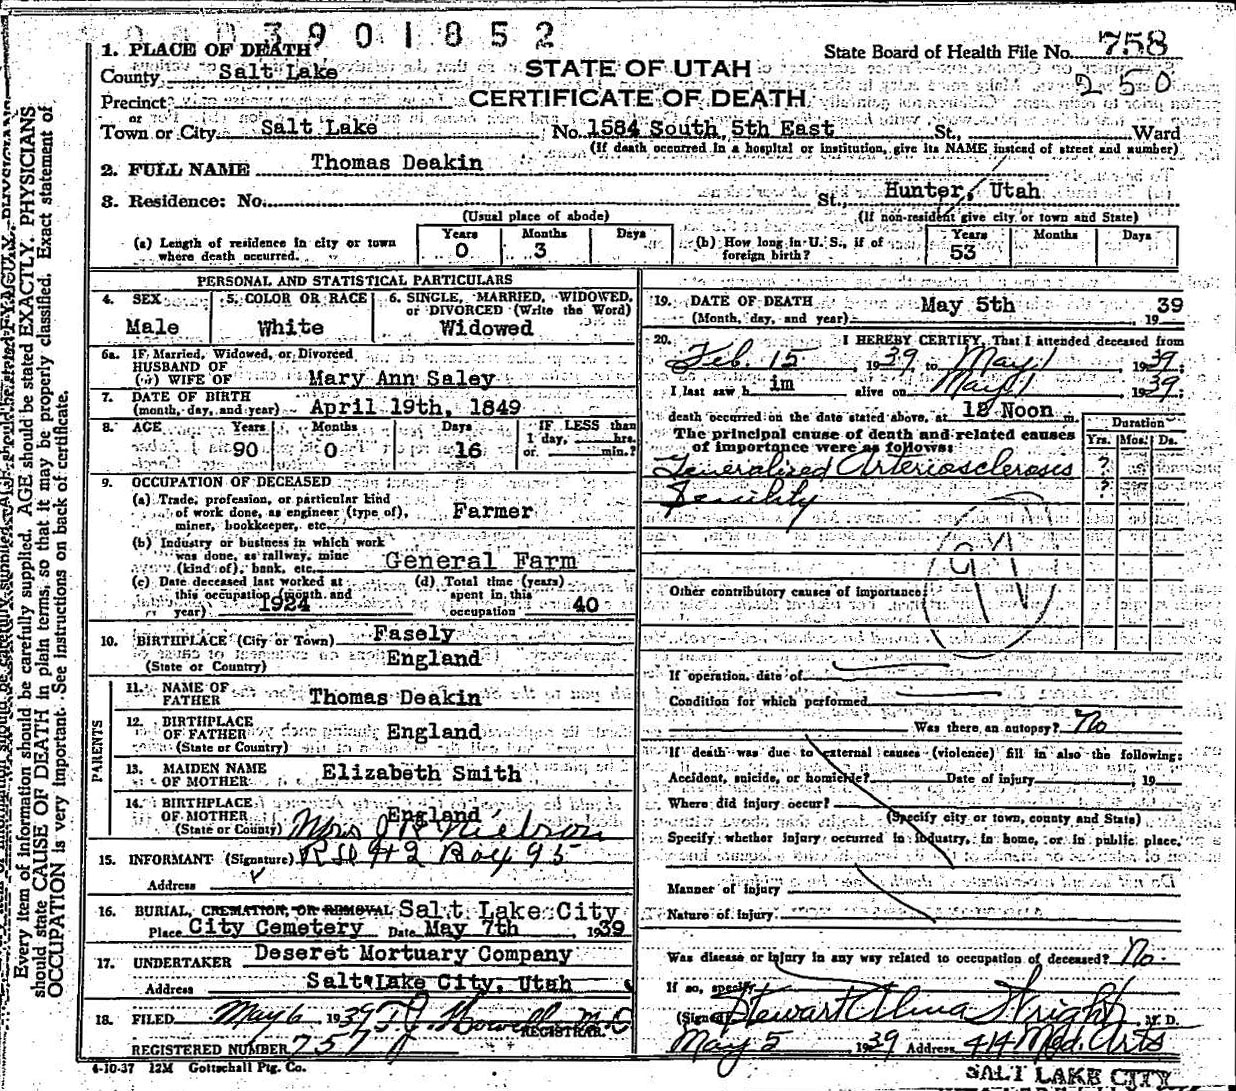 3901852
1. PLACE OF DEATH
State Board of Health File No. 758
County Salt Lake
STATE OF UTAH
250
Precinct
CERTIFICATE OF DEATH
or
Town or City Salt Lake No. 1584 South 5th East St., Ward
(If death occurred in a hospital or institution, give its NAME instead of street and number)
2. FULL NAME Thomas Deakin
3. Residence: No. St., Hunter, Utah
(Usual place of abode) (If non-resident give city or town and State)
(a) Length of residence in city or town where death occurred. Years 0 Months 3 Days
(b) How long in U. S., if of foreign birth? Years 53 Months Days
PERSONAL AND STATISTICAL PARTICULARS
4. SEX Male
5. COLOR OR RACE White
6. SINGLE, MARRIED, WIDOWED, or DIVORCED (Write the Word) Widowed
6a. IF Married, Widowed, or Divorced
HUSBAND OF
(or) WIFE OF Mary Ann Saley
7. DATE OF BIRTH
(month, day, and year) April 19th, 1849
8. AGE Years 90 Months 0 Days 16 IF LESS than 1 day, hrs. or min.?
9. OCCUPATION OF DECEASED
(a) Trade, profession, or particular kind
of work done, as engineer (type of), Farmer
miner, bookkeeper, etc.
(b) Industry or business in which work
was done, as railway, mine
(kind of), bank, etc. General Farm
(c) Date deceased last worked at
this occupation (month and
year) 1924
(d) Total time (years)
spent in this
occupation 40
10. BIRTHPLACE (City or Town) Fasely
(State or Country) England
PARENTS
11. NAME OF
FATHER Thomas Deakin
12. BIRTHPLACE
OF FATHER England
(State or Country)
13. MAIDEN NAME
OF MOTHER Elizabeth Smith
14. BIRTHPLACE
OF MOTHER England
(State or Country)
15. INFORMANT (Signature) Mrs J R Nielson
R.D. #2 Box 95
Address
16. BURIAL, CREMATION, OR REMOVAL Salt Lake City
Place City Cemetery Date May 7th, 1939
17. UNDERTAKER Deseret Mortuary Company
Address Salt Lake City, Utah
18. FILED May 6 1939 T. J. Howell M.D.
REGISTRAR.
REGISTERED NUMBER 757
4-10-37 12M Gottschall Ptg. Co.
19. DATE OF DEATH May 5th 39
(Month, day, and year) , 19
20. I HEREBY CERTIFY, That I attended deceased from
Feb. 15, 1939, to May 1, 1939;
I last saw h im alive on May 1, 1939;
death occurred on the date stated above, at 12 Noon m.
The principal cause of death and related causes
of importance were as follows:
Duration
Yrs. Mos. Ds.
Generalized Arteriosclerosis ?
Senility ?
97
Other contributory causes of importance:
If operation, date of
Condition for which performed
Was there an autopsy? No
If death was due to external causes (violence) fill in also the following:
Accident, suicide, or homicide? Date of injury 19
Where did injury occur?
(Specify city or town, county and State)
Specify whether injury occurred in industry, in home, or in public place.
Manner of injury
Nature of injury
Was disease or injury in any way related to occupation of deceased? No.
If so, specify
(Signed) Stewart Alma Wright, M. D.
May 5 1939 Address 414 Med. Arts
SALT LAKE CITY
Every item of information should be carefully supplied. AGE should be stated EXACTLY. PHYSICIANS
should state CAUSE OF DEATH in plain terms, so that it may be properly classified. Exact statement of
OCCUPATION is very important. See instructions on back of certificate.